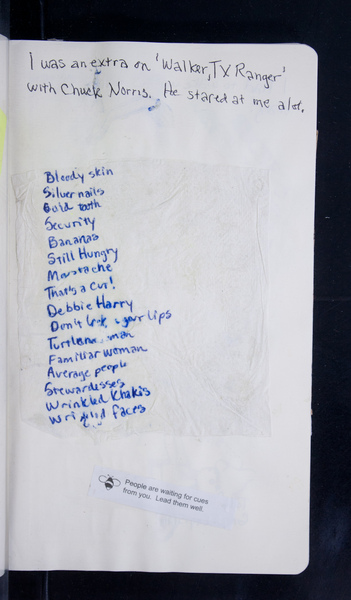 I was an extra on 'Walker, TX Ranger'
with Chuck Norris. He stared at me a lot.
Bloody skin
Silver nails
Gold tooth
Security
Bananas
Still Hungry
Mustache
That's a cut!
Debbie Harry
Don't lick your lips
man
Familiar woman
Average people
Stewardesses
Wrinkled Khakis
Wrinkled faces
People are waiting for cues
from you. Lead them well.